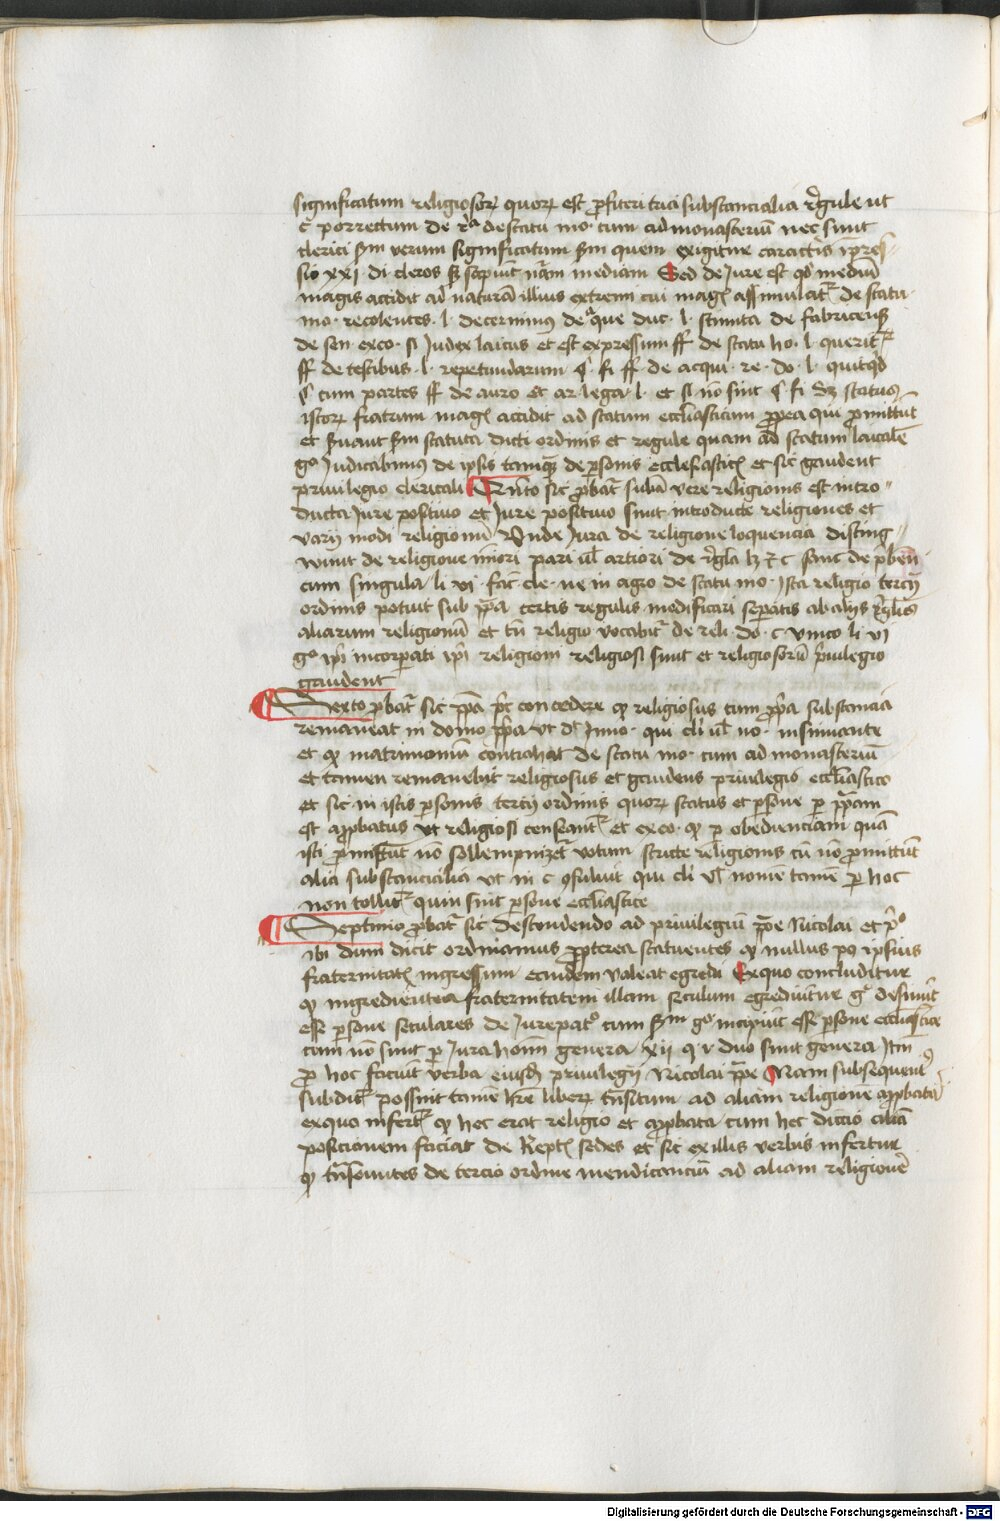 significatum religiosorꝝ quorꝝ est ꝓfiteri tria substancialia regule ut
c̄ porrectum de rᵃ de statu mo· cum ad monasterium nec sunt
clerici ẜm verum significatum ẜm quem exigitur caracteris īpres-
sio xxi di cleros sꝫ sapiūt nām mediam Sed de Jure est qd mediū
magis accidit ad naturā illius extremi cui magꝭ assimulatᷣ de statu
mo· recolentes· l· decernimus de que duc· l· de fabricensꝫ
de sen· exco· si Judex laicus et est expressum ff de statu ho· l· queritᷣ
ff de testibus· l· repetundarum § fi ff de acqui· re· do· l· quitqd
§ cum partes ff de auro et ar lega· l· et si nō sint § fi Sꝫ status
istorꝝ fratrum magꝭ accidit ad statum ecclīasticum ꝓpea qui ꝓmittūt
et ẜuant ẜm statuta dicti ordinis et regule quam ad statum laicalē
gº Judicabimus de ipsis tamqᷓ de ꝑsonis ecclesiasticꝭ et sic gaudent
priuilegio clericali Qnto sic ꝓbatᷣ subā vere religionis est intro-
ducta Jure positiuo et Jure positiuo sunt introducte religiones et
varij modi religionū Vnde Jura de religione loquencia disting-
wunt de religione mīori pari ul artiori de regla lꝫ &c sane de p̄ben
cum singula li vi· fac̄ cle· ne in agro de statu mo· Ista religio tercij
ordinis potuit sub p̄pa certis regulis modificari seꝑatis ab alijs regulis
aliarum religionū et tn̄ religio vocabitᷣ de reli· do· c vnico li vi
gº ip̄i incorꝑati ip̄i religioni religiosi sunt et religiosorū p̄uilegio
gaudent
Sexto ꝓbatᷣ sic p̄pa pᷓt concedere ꝙ religiosus cum ꝓp̄a substancia
remaneat in domo ꝓp̄a vt dꝫ Inno· qui cli ul no· insinuante
et ꝙ matrimoniū contrahat de statu mo· cum ad monasteriū
et tamen remanebit religiosus et gaudens priuilegio ecclīastico
et sic in istis ꝑsonis tercij ordinis quorꝝ status et ꝑsone ꝑ p̄pam
est aꝓbatus ut religiosi censeantᷣ et ex eo· ꝙ ꝑ obedienciam quā
isti ꝓmittūt nō sollempnizetᷣ votum stricte religionis cū nō ꝓmittūt
alia substancialia vt in c ꝯsuluit qui cli ul nomē tamē ꝑ hoc
non tollitᷣ quin sint ꝑsone ecclīastice
Septimo ꝓbatᷣ sic descendendo ad priuilegiū p̄pe Nicolai et pº
ibi dum dicit ordinamus ꝓpterea statuentes ꝙ nullus pꝰ ipsius
fraternitatꝭ ingressum eandem valeat egredi Ex quo concluditur
ꝙ ingredientes fraternitatem illam seculum egrediūtur gº desinūt
esse ꝑsone seculares de Jure patº cum ẜm gº incipiūt esse ꝑsone ecclīastice
cum nō sunt ꝑ Jura hoīm genera xii q v duo sunt genera Itm̄
ꝓ hoc faciūt verba eiusdē priuilegij Nicolai p̄pe Nam subsequent
subditᷣ possint tamē hr̄e liberꝝ tn̄situm ad aliam religionē aꝓbatā
ex quo infertᷣ ꝙ hec erat religio et aꝓbata cum hec dictio aliā
posicionem faciat de Reptꝭ sedes et sic ex illis verbis infertur
ꝙ tn̄seuntes de tercio ordine mendicanciū ad aliam religionē
Digitalisierung gefördert durch die Deutsche Forschungsgemeinschaft - DFG